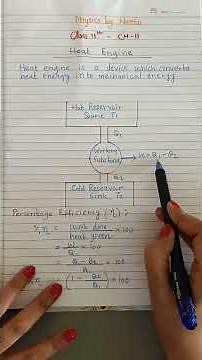 Physics by Neetu
Class 11th - CH-11
Heat Engine
Heat engine is a device which converts
heat energy into mechanical energy.
Hot Reservoir
Source T₁
Q₁
Working
Substance
→ W = Q₁ - Q₂
Q₂
Cold Reservoir
Sink T₂
Percentage Efficiency (η) :
% η = work done / heat given × 100
= W / Q₁ × 100
= Q₁ - Q₂ / Q₁ × 100
% η = (1 - Q₂ / Q₁) × 100